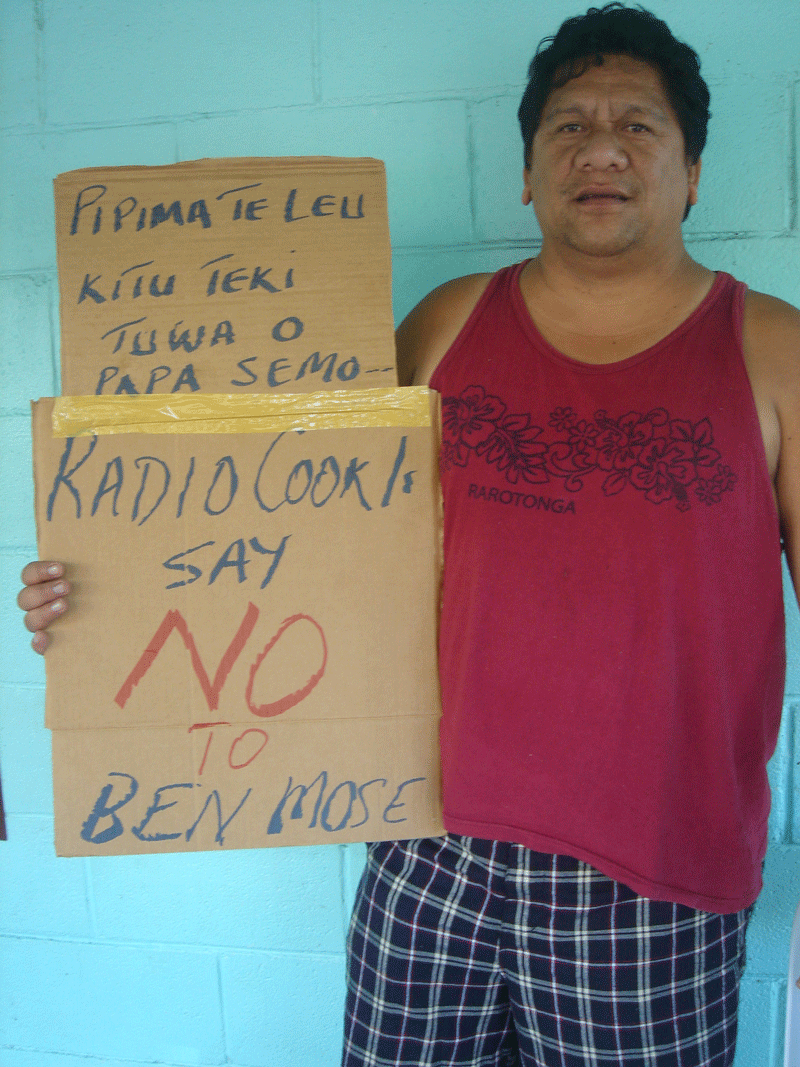 PIPIMA TE LEU
KITU TEKI
TUWA O
PAPA SEMO--
RADIO COOK Is
SAY
NO
TO
BEN MOSE
RAROTONGA